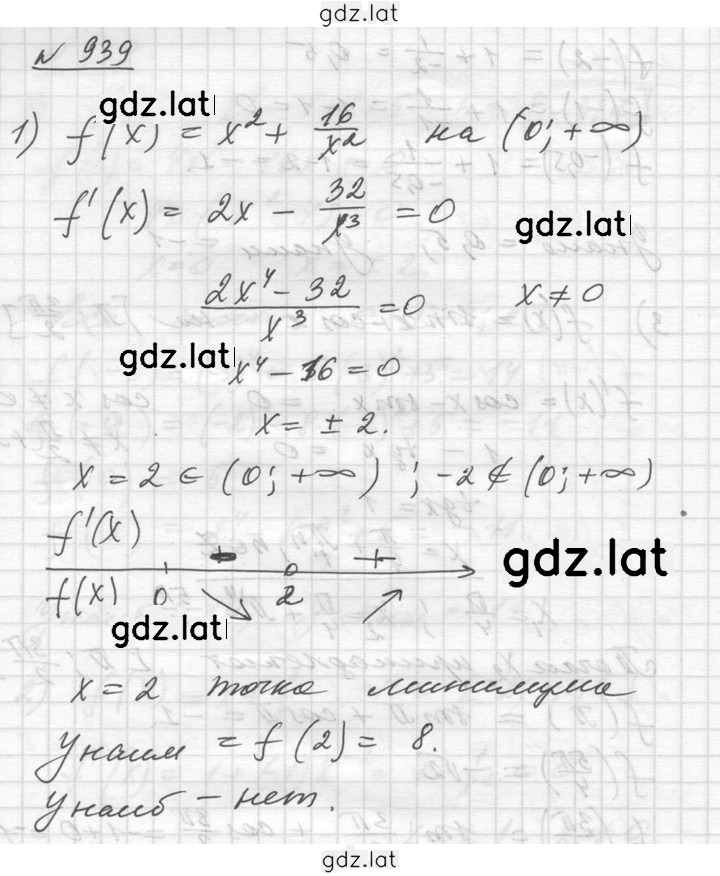 gdz.latl
№ 939
gdz.latl
1) f(x) = x² + 16/x² на (0; +∞)
f'(x) = 2x - 32/x³ = 0
gdz.latl
(2x⁴ - 32)/x³ = 0 x ≠ 0
gdz.latl
x⁴ - 16 = 0
x = ± 2.
x = 2 ∈ (0; +∞) ; -2 ∉ (0; +∞)
f'(x) - +
gdz.latl
f(x) 0 2
gdz.latl
x = 2 точка минимума
Унаим = f(2) = 8.
Унаиб - нет.
gdz.latl